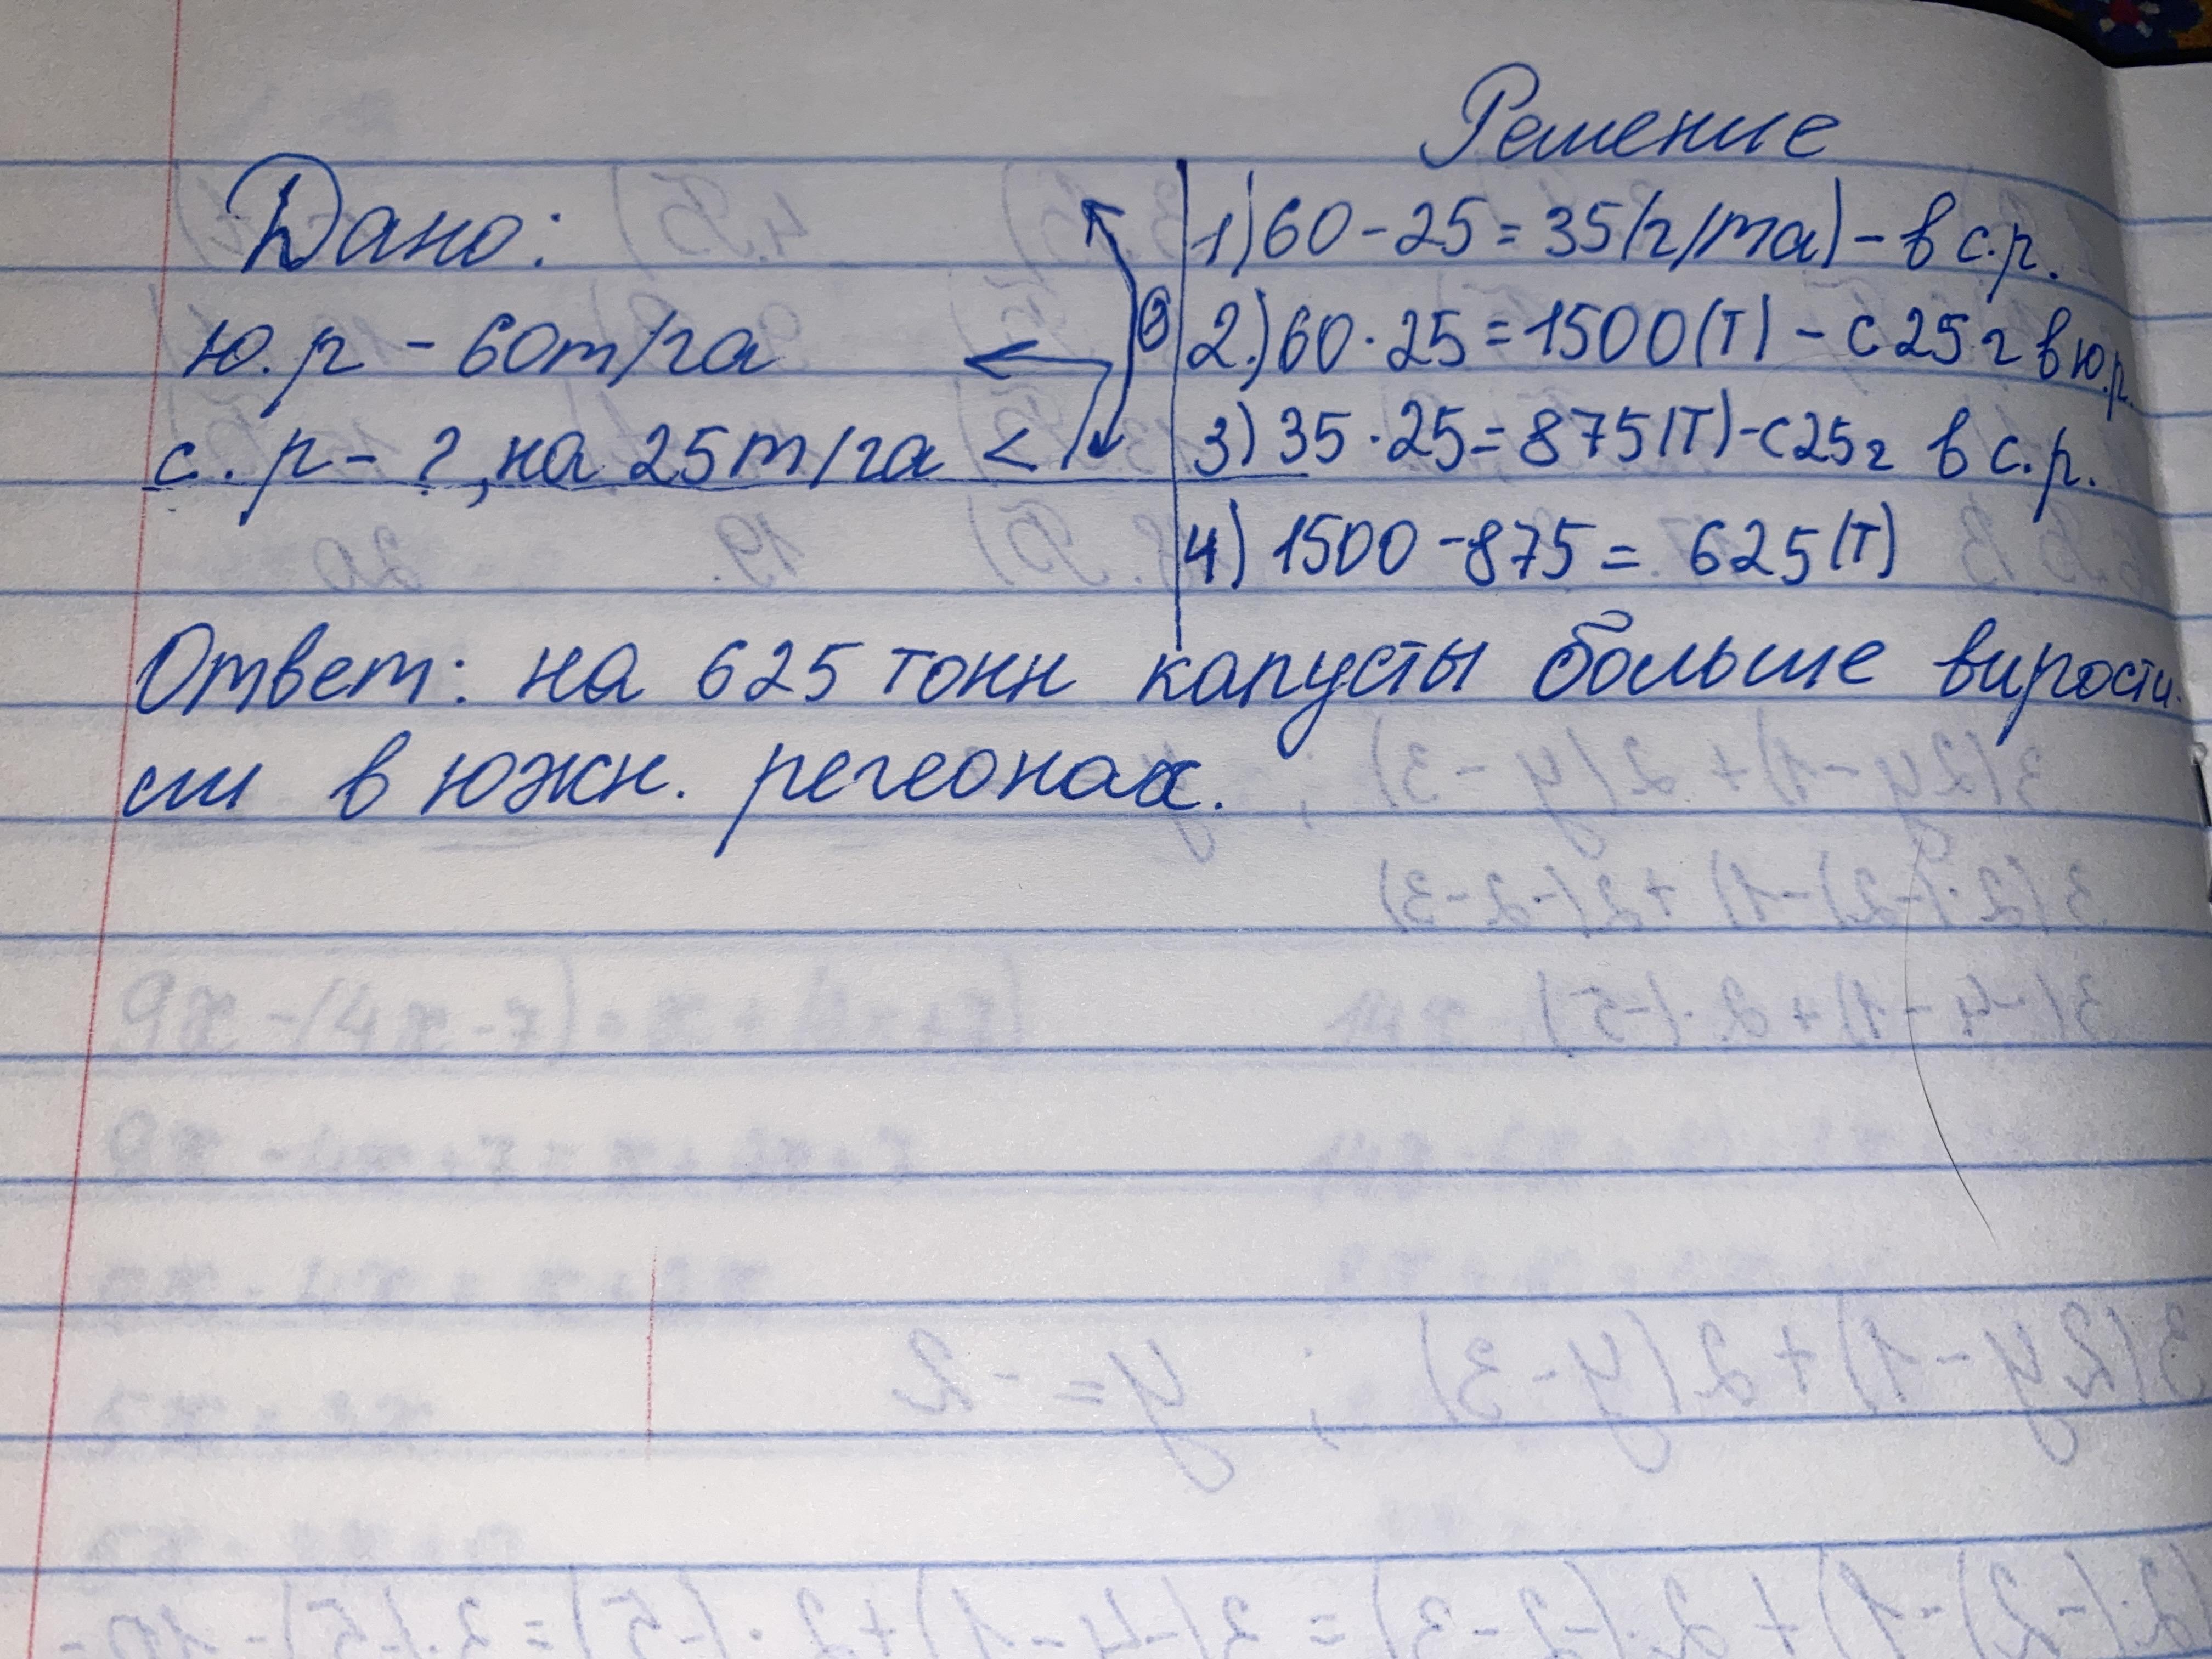 Решение
Дано:
ю.р - 60т/га
с.р - ?, на 25т/га <
1) 60 - 25 = 35(г/та) - в с.р.
2.) 60 · 25 = 1500(Т) - с 25 г в ю.р.
3) 35 · 25 = 875(Т) - с 25 г в с.р.
4) 1500 - 875 = 625(Т)
Ответ: на 625 тонн капусты больше вирости
ли в южн. регеонах.